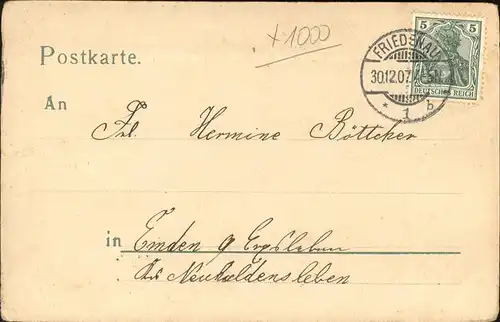 +1000
5 5
DEUTSCHES REICH
FRIEDENAU
30.12.07.
* 1 b
Postkarte.
An
Frl. Hermine Böttcher
in Emden
Kr. Neuhaldensleben